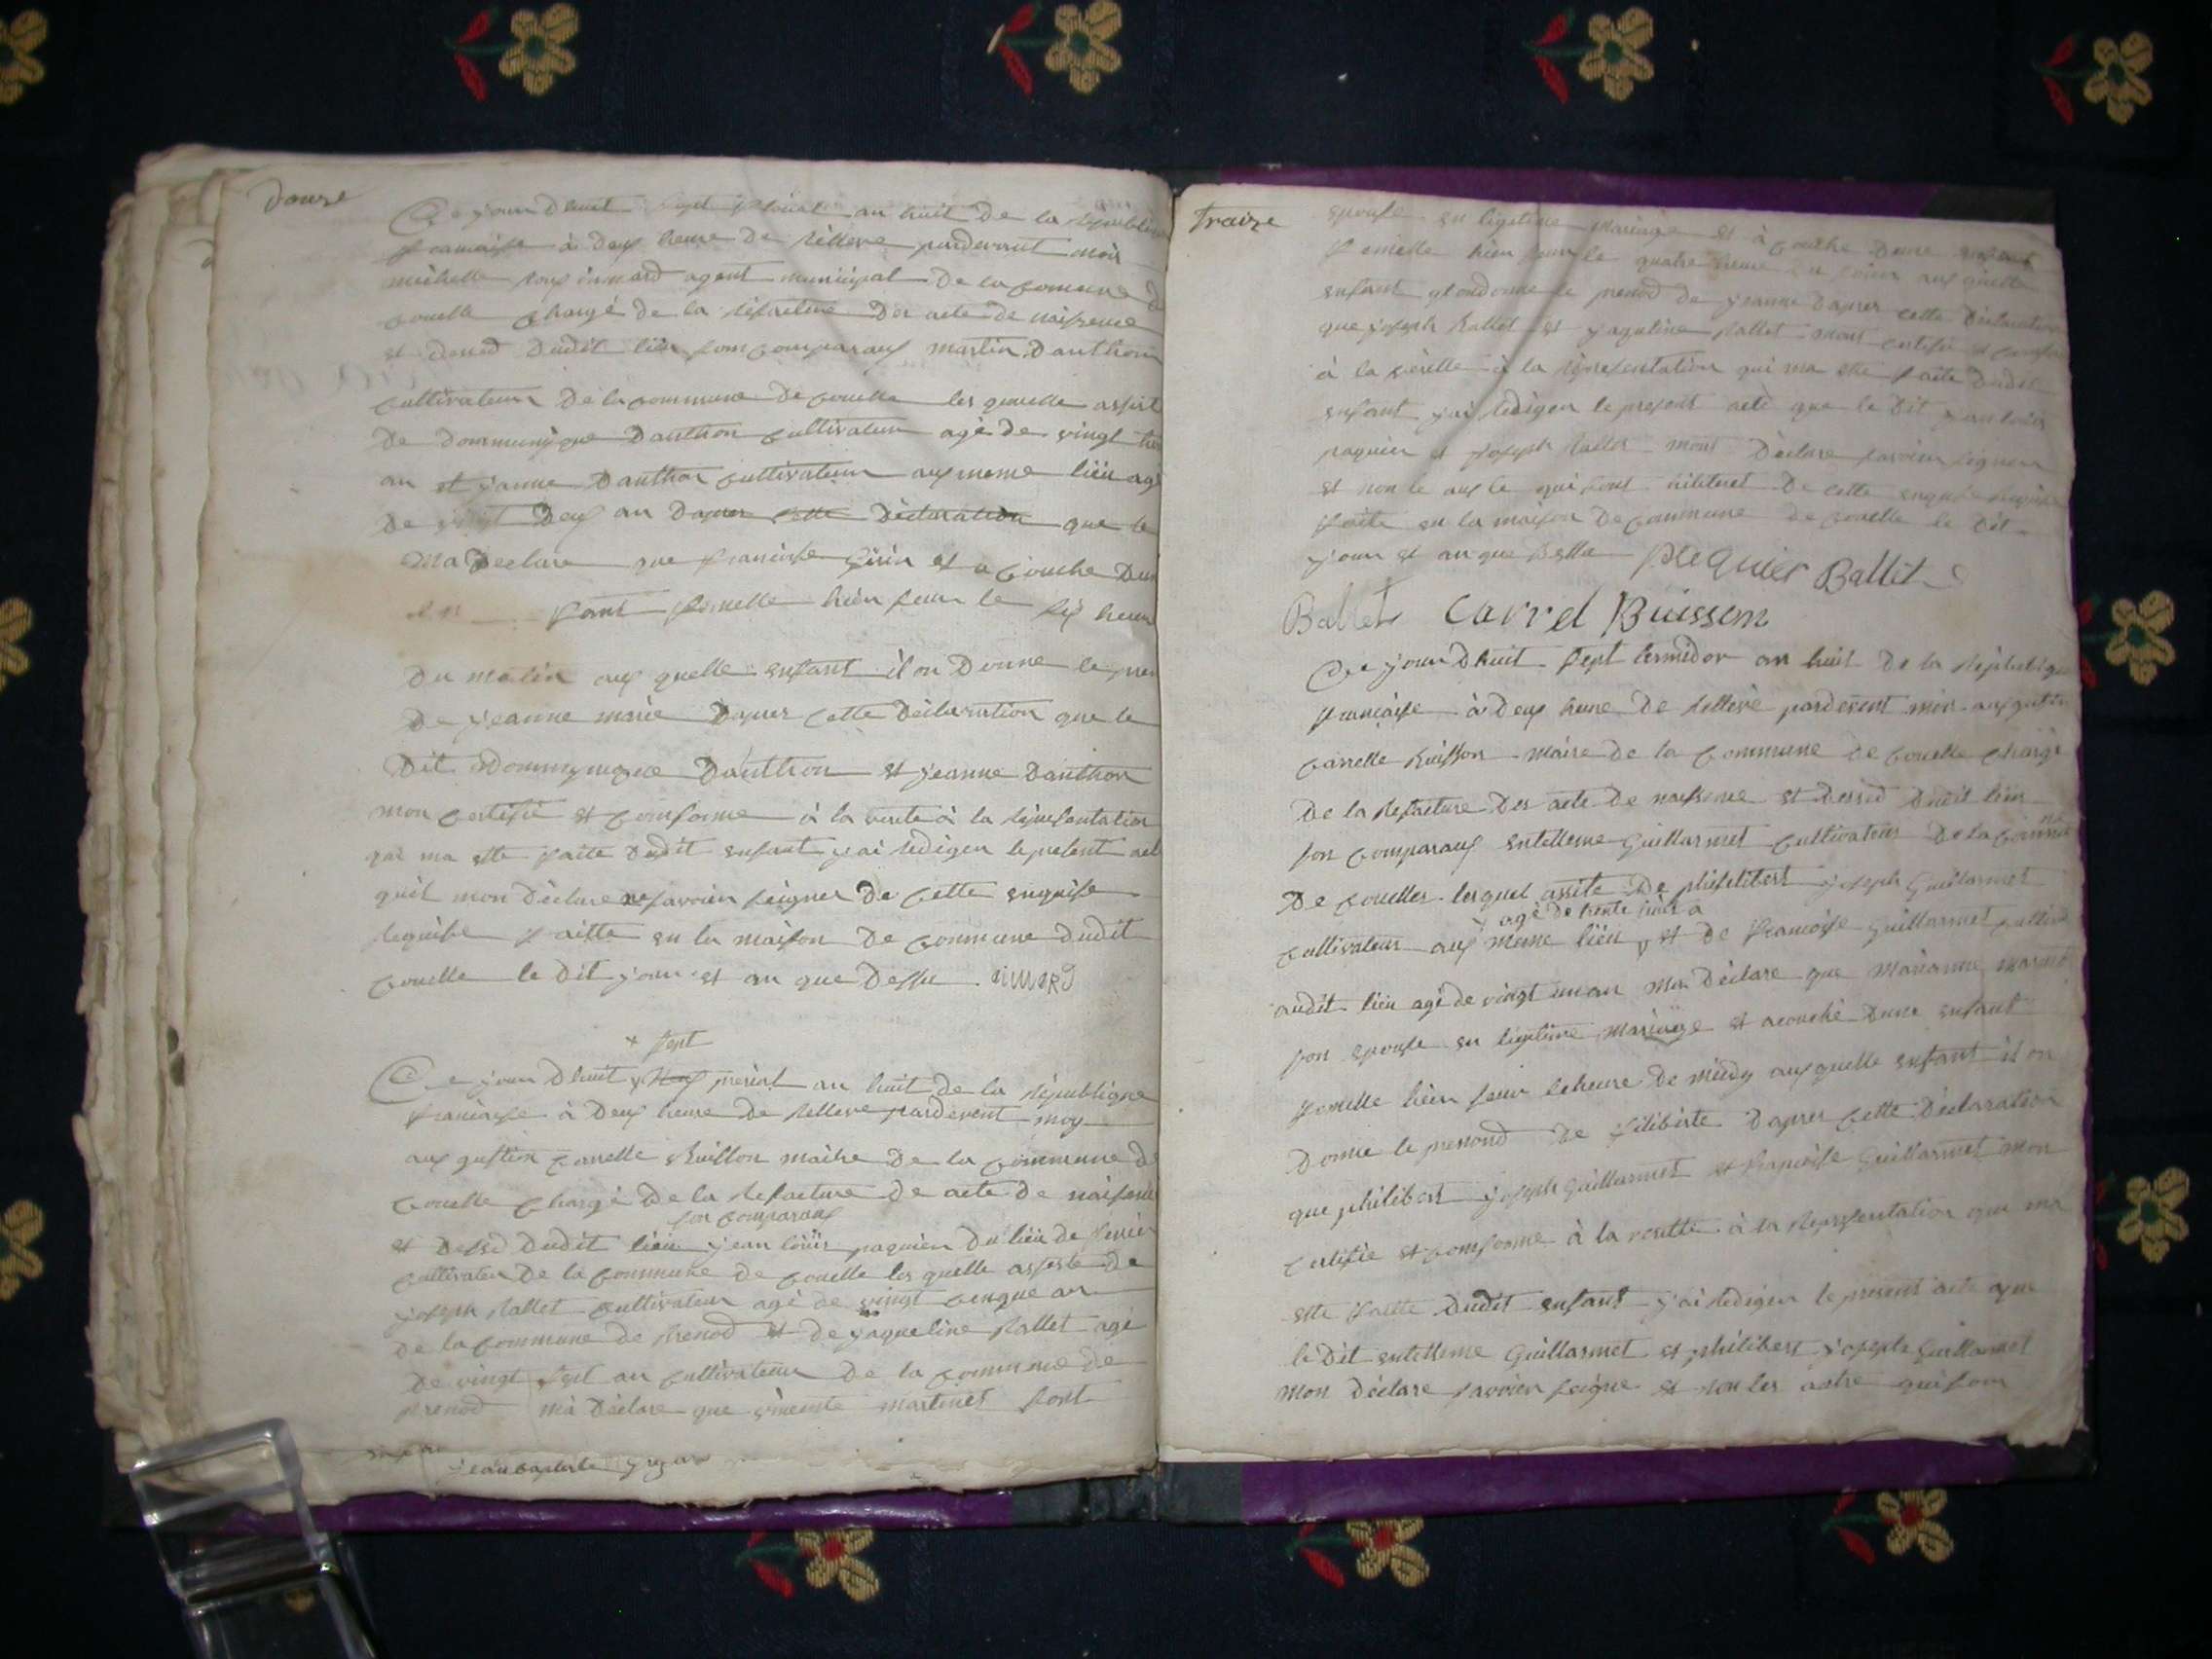 douze
Ce jour dhuit sept floreal an huit de la republique
francaise à deux heure de relleve pardevant moi
michelle aimard agent municipal de la comune de
couelle chargé de la refacture des acte de naissence
et deced dudit lieu son comparaux martin danthon
cultivateur de la commune de couelle les quelle assiste
de dommynique danthon cultivateur age de vingt
an et jeanne danthon cultivateur aux meme lieu agé
de vingt deux an daprer cette déclaration que le
ma declare que francoise et a couche dun
fant femelle hièr seur le six heure
du matin aux quelle enfant il on donne le pre
de jeanne marie daprer cette déclaration que le
dit dommynique danthon et jeanne danthon
mon certifié et comforme à la verite à la représentation
qui ma ette faite dudit enfant j'ai redigen le present act
quil mon déclare ne savoier seigner de cette enquise
requise faitte en la maison de commune dudit
couelle le dit jour et an que dessu. aimard
x sept
Ce jour dhuit x prerial an huit de la république
francaise à deux heure de relleve pardevent moy
aux gustien carrelle Buisson maitre de la commune de
couelle chargé de la refacture de acte de naissence
son comparaux
et dessed dudit lieu jean louis paquier du lieu de
cultivateu de la commune de couelle les quelle assiste de
joseph Ballet cultivateur agé de vingt cinque an
de la commune de brenod et de jaqueline Ballet agé
de vingt sept an cultivateur de la commune de
prenod ma déclare que martinet sont
jean baptiste
traize
epouse en ligetime mariage et à couche dune enfant
femelle hièr seur le quatre heure du soier aux quelle
enfant il on donne le prenod de jeanne daprer cette déclaration
que joseph Ballet et jaqueline Ballet mont certifié et comforme
à la vèrette à la représentation qui ma ette faite dudit
enfant j'ai redigen le present acte que le dit jean louis
paquier et joseph Ballet mont déclare savoier seigner
et non le aux le qui sont de cette enquise requise
faite en la maison de commune de couelle le dit
jour et an que dessu pacquier Ballet
Ballet Carrel Buisson
Ce jour dhuit sept termidor an huit de la république
francaise à deux heure de rellevé pardevent moi aux gustin
carrelle Buisson maire de la commune de couelle chargé
de la refacture des acte de naissence et dessed dudit lieu
son comparaux entelleme Guillarmet cultivateur de la commune
de couelles lesquel assite de phifelibert joseph Guillarmet
agé de trente
cultivateur aux meme lieu et de francoise Guillarmet
audit lieu agé de vingt un an ma déclare que marianne
son epouse en ligetime mariage et acouché dune enfant
femelle hièr seur le heure de midy aux quelle enfant il on
donne le prenond de filiberte daprer cette déclaration
que philibert joseph Guillarmet et francoise Guillarmet mon
certifie et comforme à la veritte à la représentation qui ma
ette faitte dudit enfant j'ai redigen le present acte que
le dit entelleme Guillarmet et philibert joseph Guillarmet
mon déclare savoier seigne et non les autre qui son